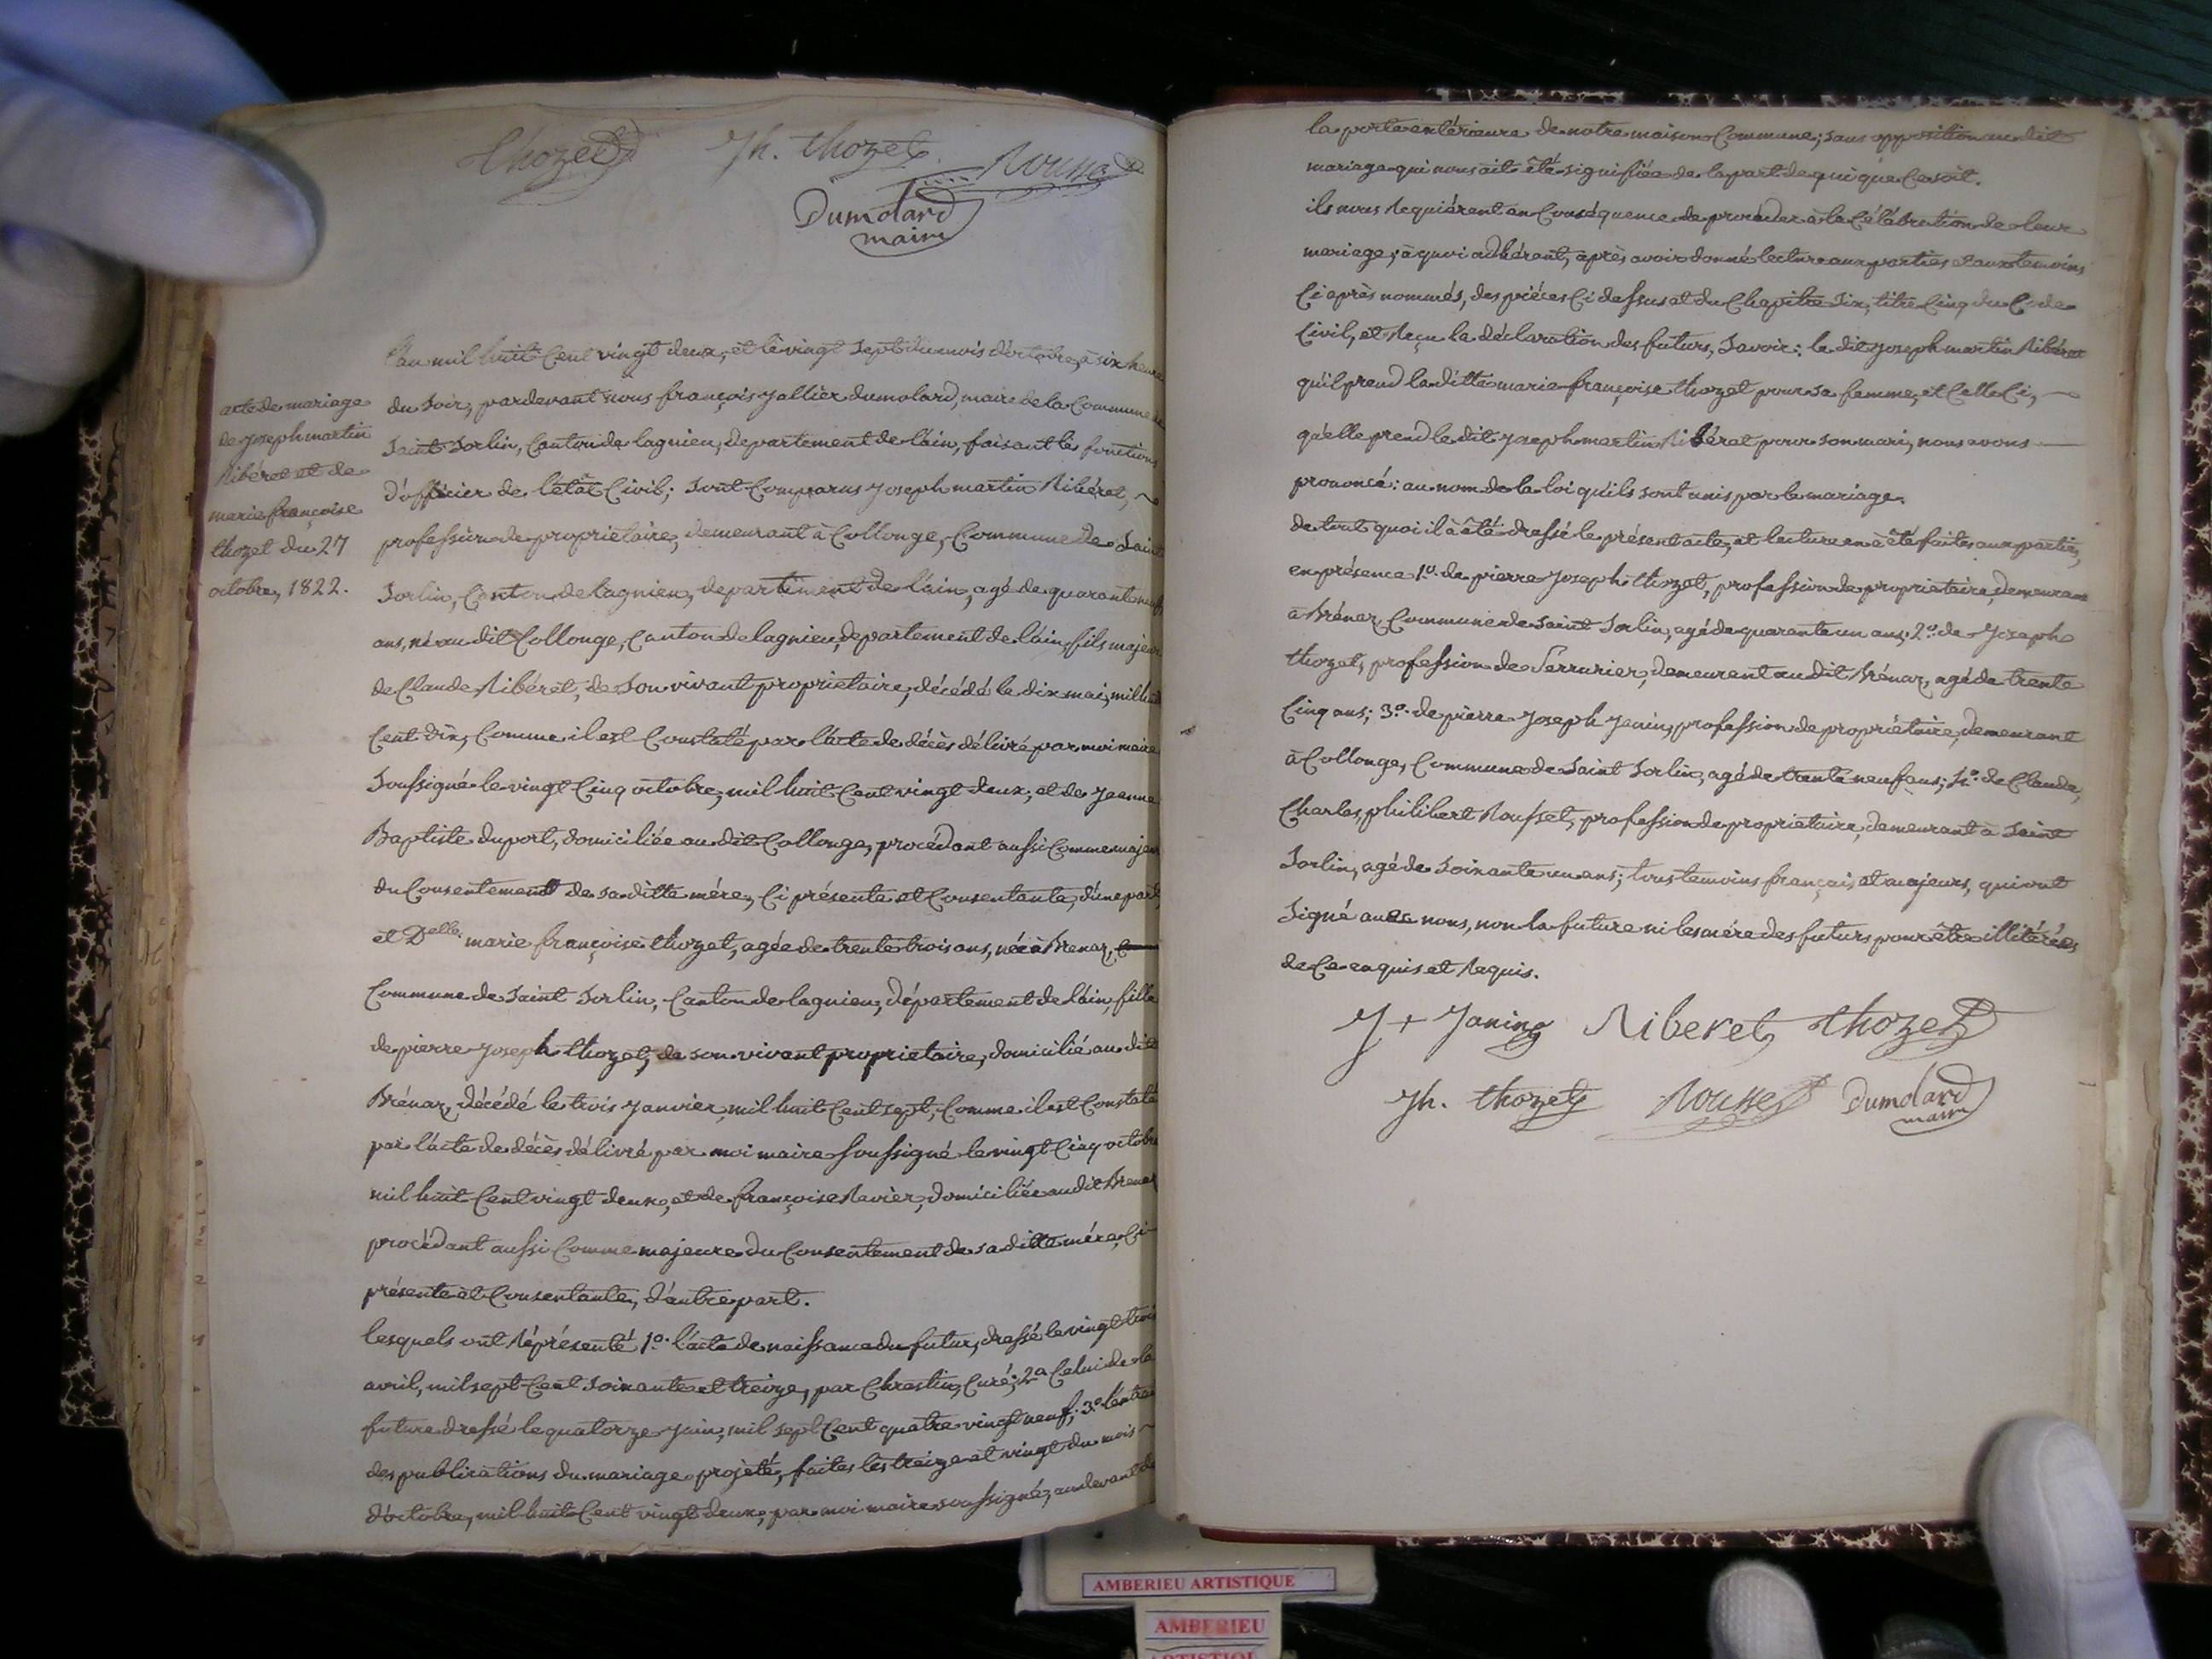 thozet
Jh. thozet
Rousset
Dumolard
maire
acte de mariage
de joseph martin
Ribéret et de
marie françoise
thozet du 27
octobre, 1822.
L'an mil huit Cent vingt deux, et le vingt Sept du mois d'octobre, à six heures
du Soir, pardevant nous françois jallier dumolard, maire de la Commune de
Saint Sorlin, Canton de lagnieu, departement de l'ain, faisant les fonctions
d'officier de l'état Civil; Sont Comparus joseph martin Ribéret,
profession de propriétaire, demeurant à Collonge, Commune de Saint
Sorlin, Canton de lagnieu, departement de l'ain, agé de quarante neuf
ans, né au dit Collonge, Canton de lagnieu, departement de l'ain, fils majeur
de Claude Ribéret, de Son vivant propriétaire, décédé le dix mai, mil huit
Cent dix, Comme il est Constaté par l'acte de décès délivré par moi maire
Soussigné le vingt Cinq octobre, mil huit Cent vingt deux; et de jeanne
Baptiste duport, domiciliée au dit Collonge, procédant aussi Comme majeur
du Consentement de sa ditte mére, Ci présente et Consentante, d'une part,
et Delle. marie françoise thozet, agée de trente trois ans, née à Brenaz,
Commune de Saint Sorlin, Canton de lagnieu, département de l'ain, fille
de pierre joseph thozet, de son vivant propriétaire, domicilié au dit
Brénaz, décédé le trois janvier, mil huit Cent sept, Comme il est Constaté
par l'acte de décès délivré par moi maire soussigné le vingt Cinq octobre
mil huit Cent vingt deux, et de françoise Ravier, domiciliée audit Brenaz
procédant aussi Comme majeure du Consentement de sa ditte mére, Ci
présente et Consentante, d'autre part.
lesquels ont Réprésenté 1º. l'acte de naissance du futur, dressé le vingt trois
avril, mil sept Cent Soixante et treize, par Chrestin, Curé; 2º Celui de la
future dressé le quatorze juin, mil sept Cent quatre vingt neuf; 3º
des publications du mariage projeté, faites les treize et vingt du mois
d'octobre, mil huit Cent vingt deux, par moi maire soussigné, au devant de
la porte extérieure de notre maison Commune; sans opposition au dit
mariage qui nous ait été signifiée de la part de qui que Ce soit.
ils nous Requiérent en Conséquence de procéder à la Célébration de leur
mariage; à quoi adhérant, après avoir donné lecture aux parties et aux temoins
Ci après nommés, des piéces Ci dessus et du Chapitre Six, titre Cinq du Code
Civil, et Reçu la déclaration des futurs, Savoir: le dit joseph martin Ribéret
qu'il prend la ditte marie françoise thozet pour sa femme, et Celle Ci,
qu'elle prend le dit joseph martin Ribéret pour son mari, nous avons
prononcé: au nom de la loi qu'ils sont unis par le mariage.
de tout quoi il à été dressé le présent acte, et lecture en à été faite aux parties,
en présence 1º. de pierre joseph thozet, profession de propriétaire, demeurant
à Brénaz, Commune de Saint Sorlin, agé de quarante un ans; 2º. de joseph
thozet, profession de Serrurier, demeurant au dit Brénaz, agé de trente
Cinq ans; 3º. de pierre joseph janin, profession de propriétaire, demeurant
à Collonge, Commune de Saint Sorlin, agé de trente neuf ans; 4º. de Claude,
Charles, philibert Rousset, profession de propriétaire, demeurant à Saint
Sorlin, agé de Soixante un ans; tous temoins français et majeurs, qui ont
Signé avec nous, non la future ni les mére des futurs pour être illitérées
de Ce enquis et Requis.
J + Janin Riberet thozet
Jh. thozet Rousset Dumolard
maire
AMBERIEU ARTISTIQUE
AMBERIEU
ARTISTIQUE